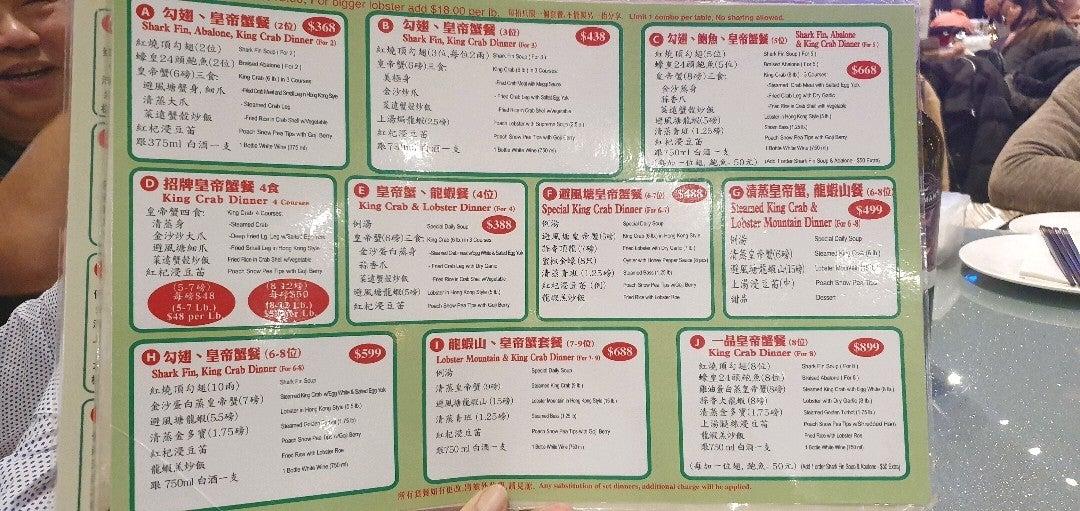 For bigger lobster add $18.00 per lb. Limit 1 combo per table, No sharing allowed.
A 勾翅、皇帝蟹餐 (2位) $368
Shark Fin, Abalone, King Crab Dinner (For 2)
紅燒頂勾翅(2位) Shark Fin Soup (For 2)
蠔皇24頭鮑魚(2位) Braised Abalone (For 2)
皇帝蟹(6磅)三食: King Crab (6 lb.) in 3 Courses
避風塘蟹身, 細爪 -Fried Crab Meat and Small Leg in Hong Kong Style
清蒸大爪 -Steamed Crab Leg
菜遠蟹殼炒飯 -Fried Rice in Crab Shell w/Vegetable
紅杞浸豆苗 Peach Snow Pea Tips with Goji Berry
跟375ml 白酒一支 1 Bottle White Wine (375 ml)
B 勾翅、皇帝蟹餐 (3位) $438
Shark Fin, King Crab Dinner (For 3)
紅燒頂勾翅(3位,每位2兩) Shark Fin Soup (For 3)
皇帝蟹(6磅)三食: King Crab (6 lb.) in 3 Courses
美極身 -Fried Crab Meat with Maggi Sauce
金沙炸爪 -Fried Crab Leg with Salted Egg Yolk
菜遠蟹殼炒飯 -Fried Rice in Crab Shell w/Vegetable
上湯焗龍蝦(2.5磅) Lobster with Supreme Souce (2.5 lb.)
紅杞浸豆苗 Peach Snow Pea Tips with Goji Berry
跟750ml 白酒一支 1 Bottle White Wine (750 ml)
C 勾翅、鮑魚、皇帝蟹餐 (5位) Shark Fin, Abalone
& King Crab Dinner (For 5)
$668
紅燒頂勾翅(5位) Shark Fin Soup (For 5)
蠔皇24頭鮑魚(5位) Braised Abalone (For 5)
皇帝蟹(8磅)三食: King Crab (8 lb.) 3 Courses
金沙蒸身 -Steamed Crab Meat with Salted Egg Yolk
蒜香爪 -Fried Crab Leg with Dry Garlic
菜遠蟹殼炒飯 -Fried Rice in Crab Shell with Vegetable
避風塘龍蝦(5磅) Lobster in Hong Kong Style (5 lb.)
清蒸青班 (1.25磅) Steam Bass (1.25 lb.)
紅杞浸豆苗 Peach Snow Pea Tips with Goji Berry
跟750ml 白酒一支 1 Bottle White Wine (750 ml)
(每加一位翅, 鮑魚- 50元) (Add 1 order Shark Fin Soup & Abalone - $50 Extra)
D 招牌皇帝蟹餐 4食
King Crab Dinner 4 Courses
皇帝蟹四食: King Crab 4 Courses:
清蒸身 -Steamed Crab
金沙炒大爪 -Deep Fried Lg. Leg w/Salted Egg Yolk
避風塘細爪 -Fried Small Leg in Hong Kong Style
菜遠蟹殼炒飯 Fried Rice in Crab Shell w/Vegetable
紅杞浸豆苗 Peach Snow Pea Tips with Goji Berry
(5-7磅)
每磅$48
(5-7 Lb.)
$48 per Lb
(8-12磅)
每磅$50
(8-12 Lb.)
E 皇帝蟹、龍蝦餐 (4位)
King Crab & Lobster Dinner (For 4)
$388
例湯 Special Daily Soup
皇帝蟹(6磅)三食: King Crab (6 lb.) in 3 Courses
金沙蛋白蒸身 -Steamed Crab Meat w/Egg White & Salted Egg Yolk
蒜香爪 -Fried Crab Leg with Dry Garlic
菜遠蟹殼炒飯 -Fried Rice in Crab Shell w/Vegetable
避風塘龍蝦(5磅) Lobster in Hong Kong Style (5 lb.)
紅杞浸豆苗 Peach Snow Pea Tips with Goji Berry
F 避風塘皇帝蟹餐 (6-7位) $488
Special King Crab Dinner (For 6-7)
例湯 Special Daily Soup
避風塘皇帝蟹(6磅) King Crab (6 lb.) in Hong Kong Style
蒜香頂龍(7磅) Fried Lobster with Dry Garlic (7 lb.)
蜜椒金蠔(8只) Oyster with Honey Pepper Sauce (8 pcs)
清蒸青班 (1.25磅) Steamed Bass (1.25 lb.)
紅杞浸豆苗 (例) Peach Snow Pea Tips with Goji Berry
龍蝦羔炒飯 Fried Rice with Lobster Roe
G 清蒸皇帝蟹, 龍蝦山餐 (6-8位)
Steamed King Crab & $499
Lobster Mountain Dinner (For 6-8)
例湯 Special Daily Soup
清蒸皇帝蟹(6磅) Steamed King Crab (6 lb.)
避風塘龍蝦山(15磅) Lobster Mountain
上湯浸豆苗(中) Peach Snow Pea Tips
甜品 Dessert
H 勾翅、皇帝蟹餐 (6-8位) $599
Shark Fin, King Crab Dinner (For 6-8)
紅燒頂勾翅(10兩) Shark Fin Soup
金沙蛋白蒸皇帝蟹(7磅) Steamed King Crab w/Egg White & Salted Egg Yolk
避風塘龍蝦(5.5磅) Lobster in Hong Kong Style (5.5 lb.)
清蒸金多寶(1.75磅) Steamed Golden Turbot (1.75 lb.)
紅杞浸豆苗 Peach Snow Pea Tips w/Goji Berry
龍蝦羔炒飯 Fried Rice with Lobster Roe
跟 750ml 白酒一支 1 Bottle White Wine (750 ml)
I 龍蝦山、皇帝蟹套餐 (7-9位) $688
Lobster Mountain & King Crab Dinner (For 7-9)
例湯 Special Daily Soup
清蒸皇帝蟹 (9磅) Steamed King Crab (9 lb.)
避風塘龍蝦山 (15磅) Lobster Mountain in Hong Kong Style (15 lb.)
清蒸青班 (1.25磅) Steamed Bass (1.25 lb)
紅杞浸豆苗 Peach Snow Pea Tips with Goji Berry
跟750 ml 白酒一支 1 Bottle White Wine (750 ml)
J 一品皇帝蟹餐 (8位) $899
King Crab Dinner (For 8)
紅燒頂勾翅(8位) Shark Fin Soup (For 8)
蠔皇24頭鮑魚(8位) Braised Abalone (For 8)
雞油蛋白蒸皇帝蟹(8磅) Steamed King Crab with Egg White (8 lb.)
蒜香大龍蝦(8磅) Lobster with Dry Garlic (8 lb.)
清蒸金多寶(1.75磅) Steamed Golden Turbot (1.75 lb.)
上湯腿絲浸豆苗 Peach Snow Pea Tips w/Shredded Ham
龍蝦羔炒飯 Fried Rice with Lobster Roe
跟750ml 白酒一支 1 Bottle White Wine (750 ml)
(每加一位翅, 鮑魚- 50元) (Add 1 order Shark Fin Soup & Abalone - $50 Extra)
所有套餐如有更改, Any substitution of set dinners, additional charge will be applied.